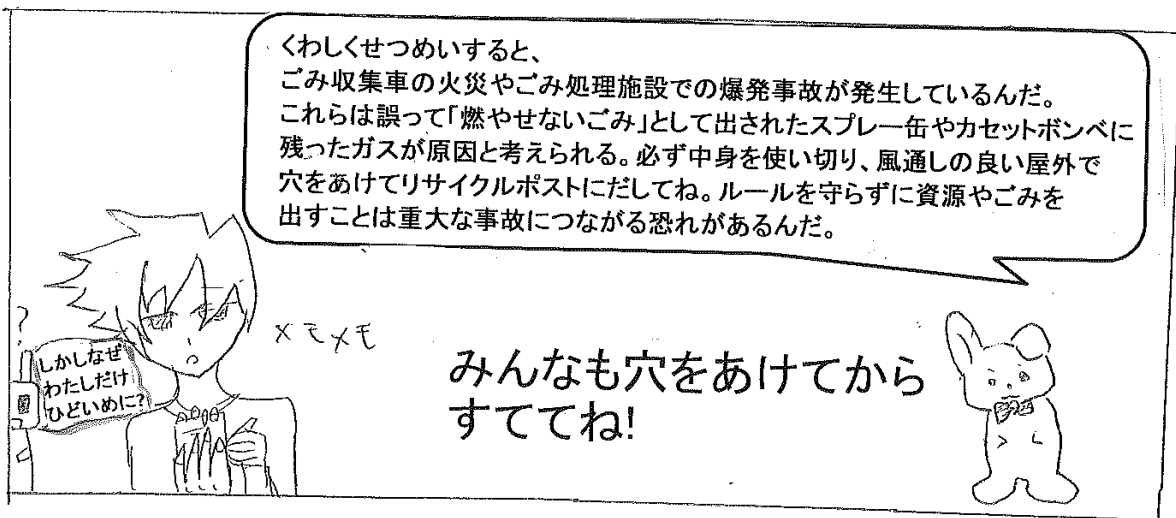 くわしくせつめいすると、
ごみ収集車の火災やごみ処理施設での爆発事故が発生しているんだ。
これらは誤って「燃やせないごみ」として出されたスプレー缶やカセットボンベに
残ったガスが原因と考えられる。必ず中身を使い切り、風通しの良い屋外で
穴をあけてリサイクルポストにだしてね。ルールを守らずに資源やごみを
出すことは重大な事故につながる恐れがあるんだ。
?
しかしなぜ
わたしだけ
ひどいめに?
メモメモ
みんなも穴をあけてから
すててね!